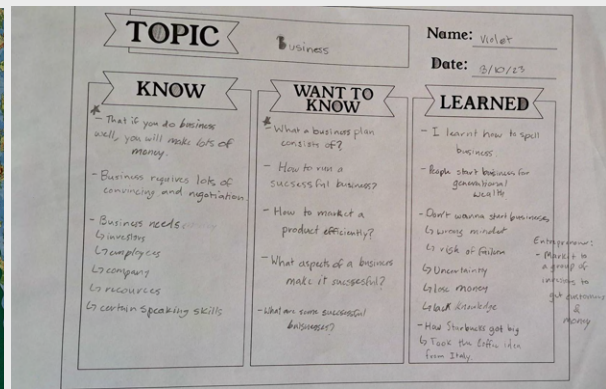 TOPIC
Business
Name: Violet
Date: 3/10/23
KNOW
- That if you do business
well, you will make lots of
money.
- Business requires lots of
convincing and negotiation.
- Business needs
↳ investors
↳ employees
↳ company
↳ resources
↳ certain speaking skills
WANT TO
KNOW
- What a business plan
consists of?
- How to run a
successful business?
- How to market a
product efficiently?
- What aspects of a business
make it successful?
- What are some successful
businesses?
LEARNED
- I learnt how to spell
business.
- People start business for
generational
wealth
- Don't wanna start businesses
↳ wrong mindset
↳ risk of failure
↳ Uncertainty
↳ lose money
↳ lack knowledge
- How Starbucks got big
↳ Took the coffee idea
from Italy.
Entrepreneur:
- Market to
a group of
investors to
get customers
&
money